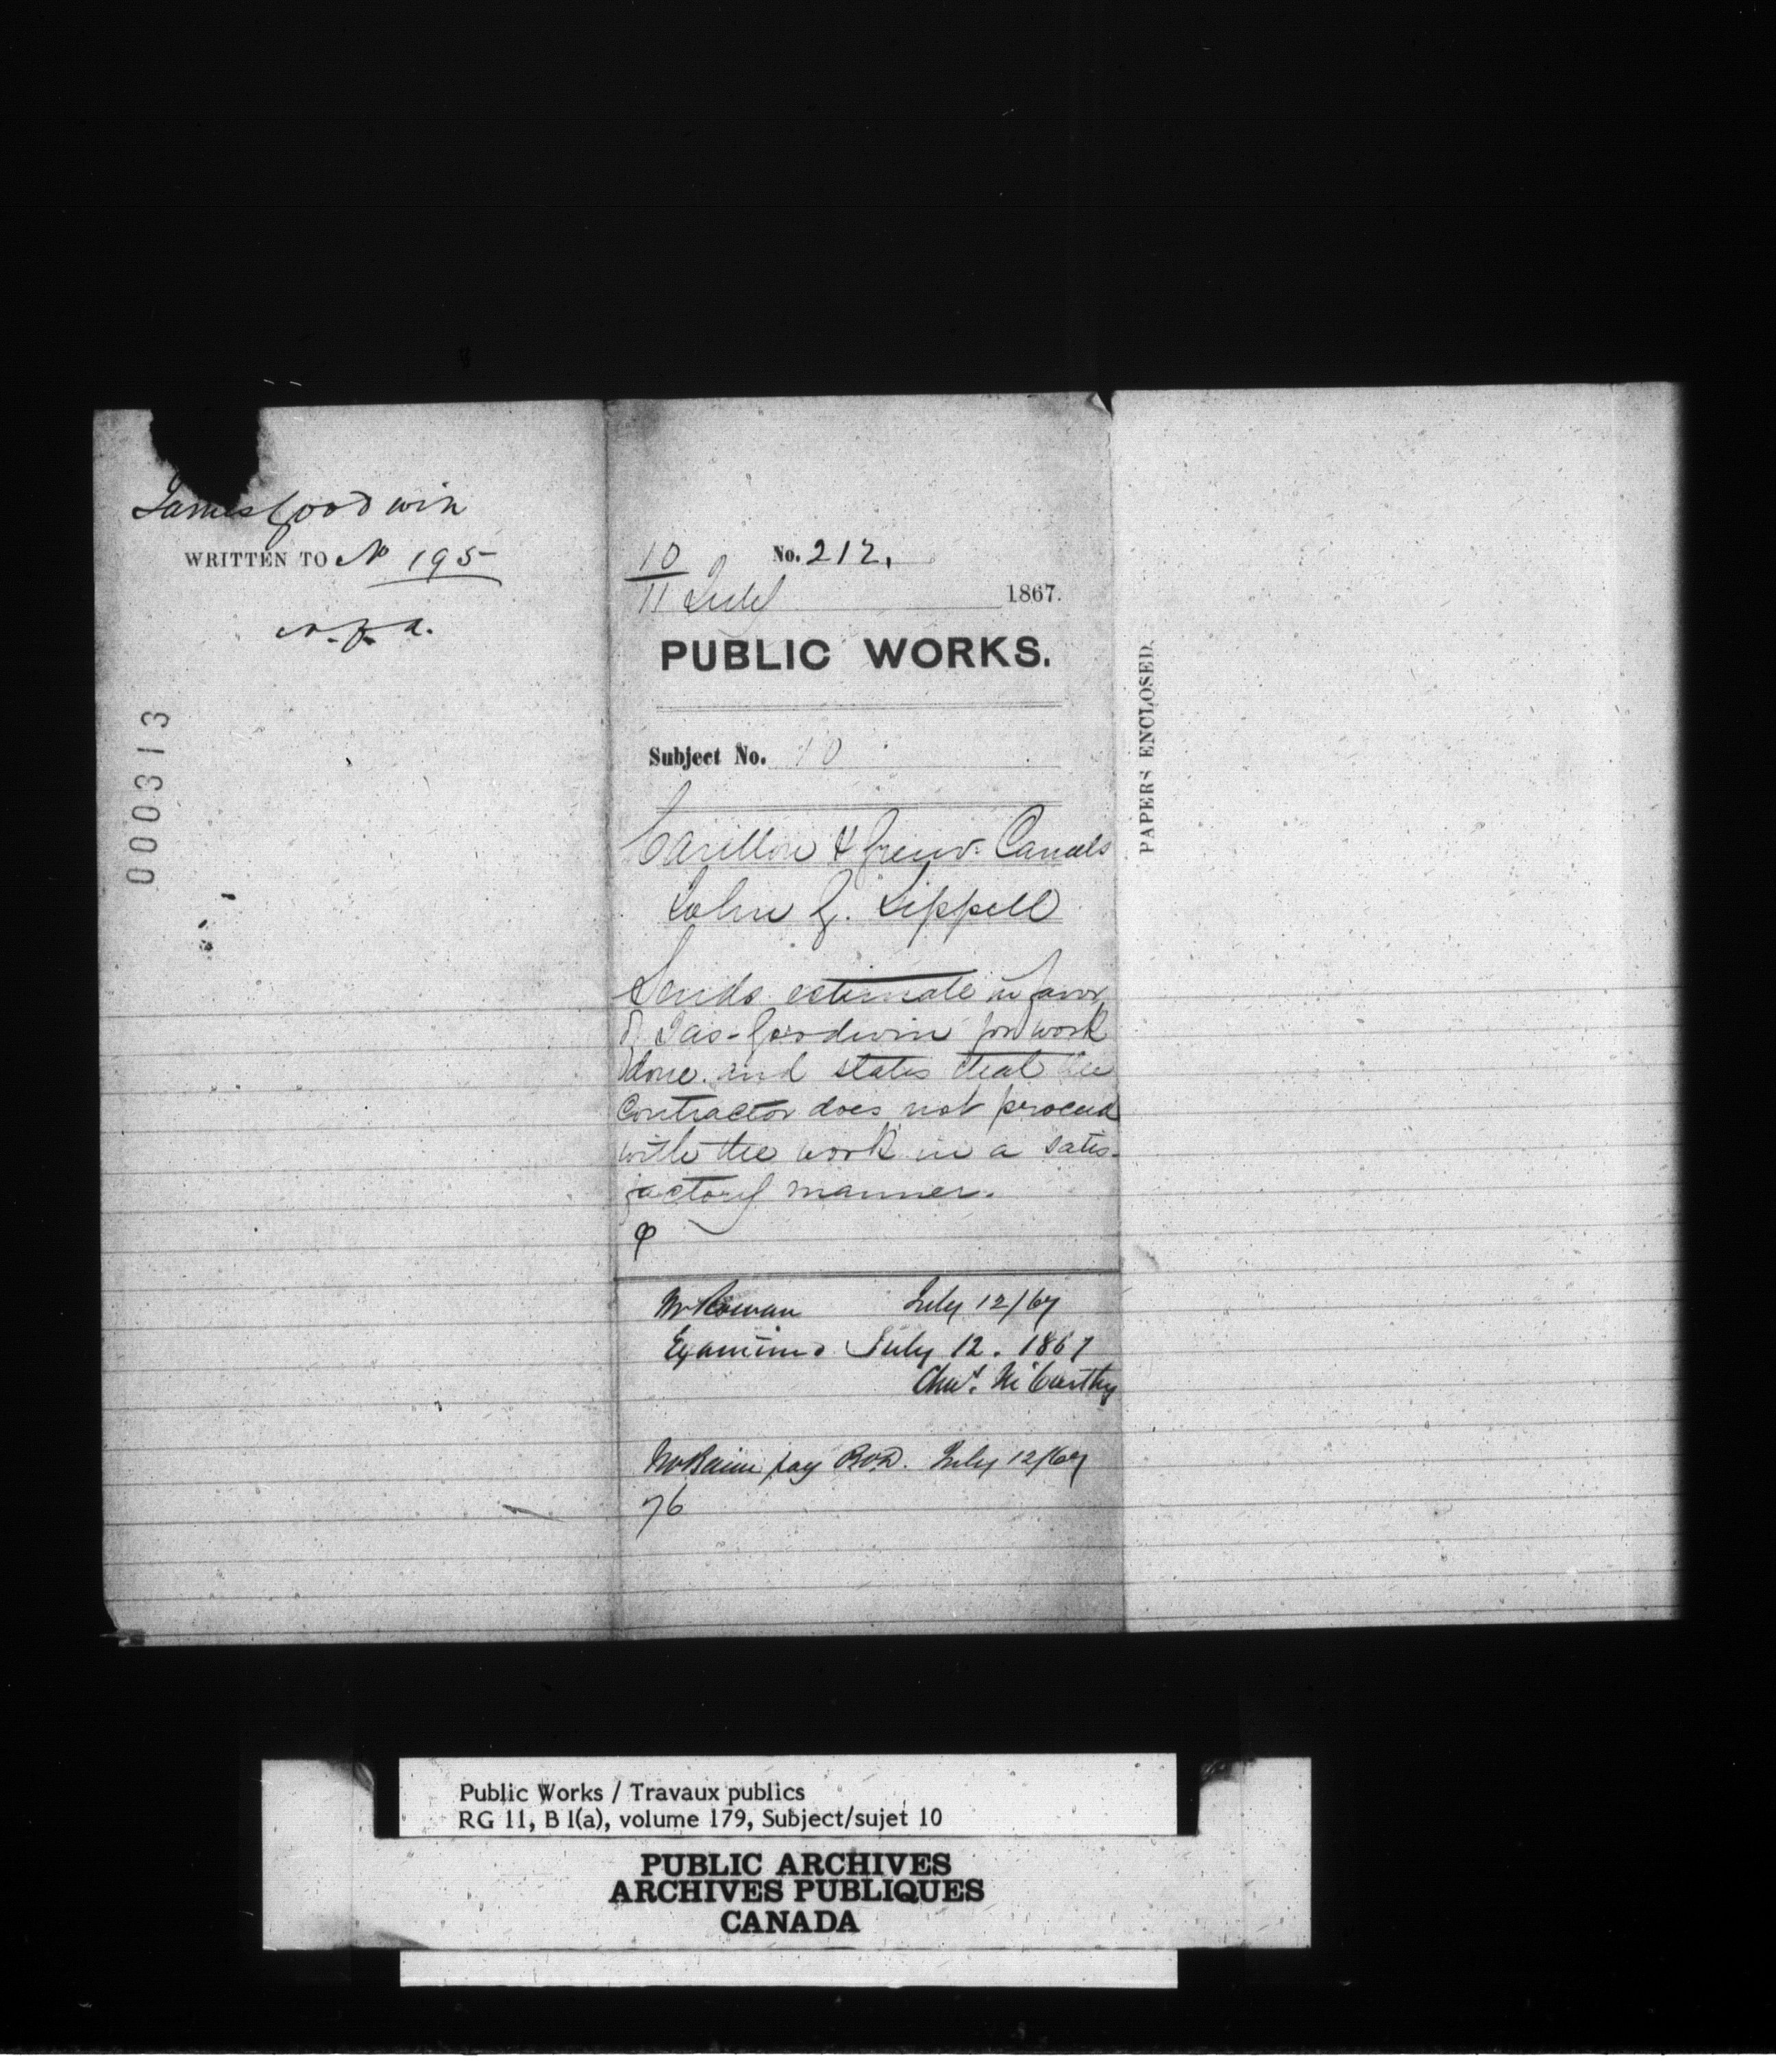 James Goodwin
WRITTEN TO No 195
n.f.a.
000313
10 No. 212.
11 July 1867.
PUBLIC WORKS.
Subject No. 10
Carillon & Grenv. Canals
John G. Sippell
Sends estimate in favor
of Jas. Goodwin for work
done. and states that the
Contractor does not proceed
with the work in a satis-
factory manner.
Mr Rowan July 12/67
Examined July 12. 1867
Chas. McCarthy
Mr Baine pay July 12/67
76
PAPERS ENCLOSED.
Public Works / Travaux publics
RG 11, B 1(a), volume 179, Subject/sujet 10
PUBLIC ARCHIVES
ARCHIVES PUBLIQUES
CANADA